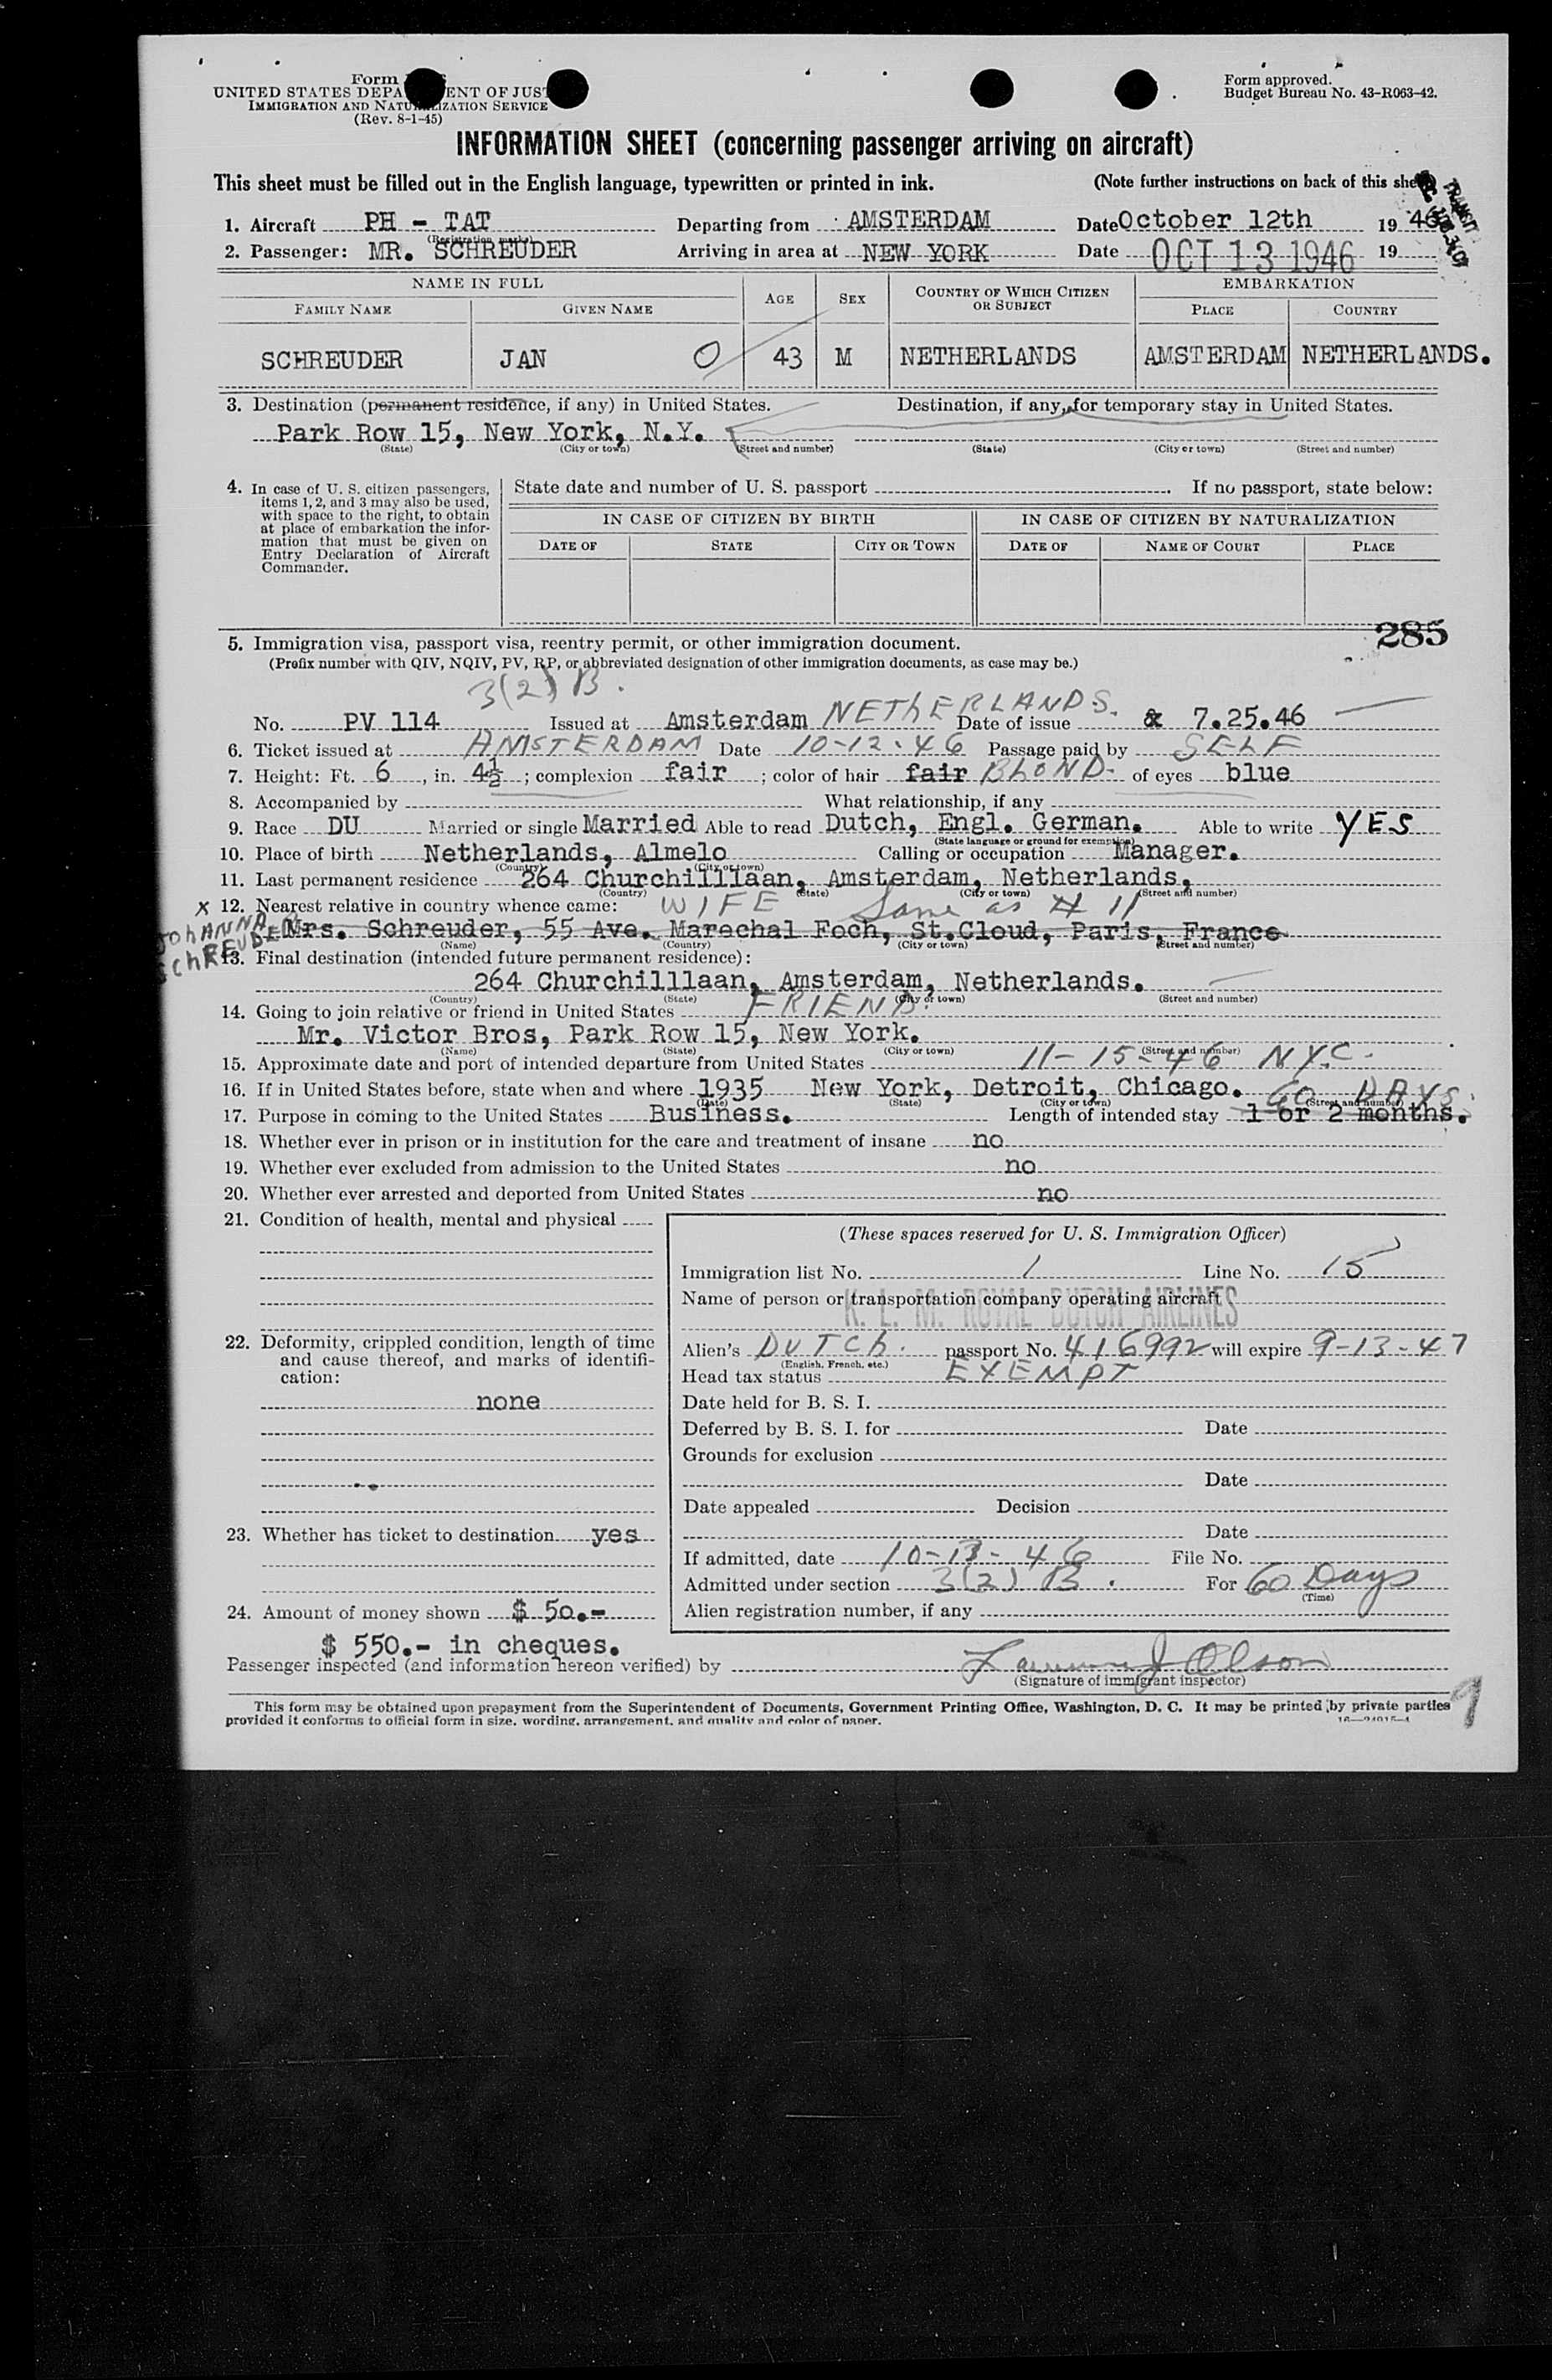 Form
UNITED STATES DEPA ENT OF JUST
IMMIGRATION AND NATURALIZATION SERVICE
(Rev. 8-1-45)
Form approved.
Budget Bureau No. 43-R063-42.
INFORMATION SHEET (concerning passenger arriving on aircraft)
This sheet must be filled out in the English language, typewritten or printed in ink. (Note further instructions on back of this sheet)
TRANSIT
1. Aircraft PH - TAT Departing from AMSTERDAM Date October 12th 19 46
(Registration marks)
2. Passenger: MR. SCHREUDER Arriving in area at NEW YORK Date OCT 13 1946 19
NAME IN FULL AGE SEX COUNTRY OF WHICH CITIZEN OR SUBJECT EMBARKATION
FAMILY NAME GIVEN NAME PLACE COUNTRY
SCHREUDER JAN O 43 M NETHERLANDS AMSTERDAM NETHERLANDS.
3. Destination (permanent residence, if any) in United States. Destination, if any, for temporary stay in United States.
Park Row 15, New York, N.Y.
(State) (City or town) (Street and number) (State) (City or town) (Street and number)
4. In case of U. S. citizen passengers, items 1, 2, and 3 may also be used, with space to the right, to obtain at place of embarkation the information that must be given on Entry Declaration of Aircraft Commander.
State date and number of U. S. passport . If no passport, state below:
IN CASE OF CITIZEN BY BIRTH IN CASE OF CITIZEN BY NATURALIZATION
DATE OF STATE CITY OR TOWN DATE OF NAME OF COURT PLACE
285
5. Immigration visa, passport visa, reentry permit, or other immigration document.
(Prefix number with QIV, NQIV, PV, RP, or abbreviated designation of other immigration documents, as case may be.)
3(2) B.
No. PV 114 Issued at Amsterdam NETHERLANDS. Date of issue & 7.25.46
6. Ticket issued at AMSTERDAM Date 10-12-46 Passage paid by SELF
7. Height: Ft. 6, in. 4½; complexion fair; color of hair fair BLOND. of eyes blue
8. Accompanied by What relationship, if any
9. Race DU Married or single Married Able to read Dutch, Engl. German. Able to write YES
(State language or ground for exemption)
10. Place of birth Netherlands, Almelo Calling or occupation Manager.
(Country) (City or town)
11. Last permanent residence 264 Churchilllaan, Amsterdam, Netherlands,
(Country) (State) (City or town) (Street and number)
X 12. Nearest relative in country whence came: WIFE Same as # 11
JOHANNA
SCHREUDER
Mrs. Schreuder, 55 Ave. Marechal Foch, St.Cloud, Paris, France
(Name) (Country) (City or town) (Street and number)
13. Final destination (intended future permanent residence):
264 Churchilllaan, Amsterdam, Netherlands.
(Country) (State) (City or town) (Street and number)
14. Going to join relative or friend in United States FRIEND.
Mr. Victor Bros, Park Row 15, New York.
(Name) (State) (City or town) (Street and number)
15. Approximate date and port of intended departure from United States 11-15-46 N.Y.C.
16. If in United States before, state when and where 1935 New York, Detroit, Chicago.
(Date) (State) (City or town) (Street and number)
60 DAYS.
17. Purpose in coming to the United States Business. Length of intended stay 1 or 2 months.
18. Whether ever in prison or in institution for the care and treatment of insane no
19. Whether ever excluded from admission to the United States no
20. Whether ever arrested and deported from United States no
21. Condition of health, mental and physical
22. Deformity, crippled condition, length of time and cause thereof, and marks of identification:
none
23. Whether has ticket to destination yes
24. Amount of money shown $ 50.-
$ 550.- in cheques.
(These spaces reserved for U. S. Immigration Officer)
Immigration list No. 1 Line No. 15
Name of person or transportation company operating aircraft
K. L. M. ROYAL DUTCH AIRLINES
Alien's DUTCH. passport No. 416992 will expire 9-13-47
(English, French, etc.)
Head tax status EXEMPT
Date held for B. S. I.
Deferred by B. S. I. for Date
Grounds for exclusion
Date
Date appealed Decision
Date
If admitted, date 10-13-46 File No.
Admitted under section 3(2) B. For 60 Days
(Time)
Alien registration number, if any
Passenger inspected (and information hereon verified) by Lawrence J Olson
(Signature of immigrant inspector)
This form may be obtained upon prepayment from the Superintendent of Documents, Government Printing Office, Washington, D. C. It may be printed by private parties
provided it conforms to official form in size, wording, arrangement, and quality and color of paper.
9